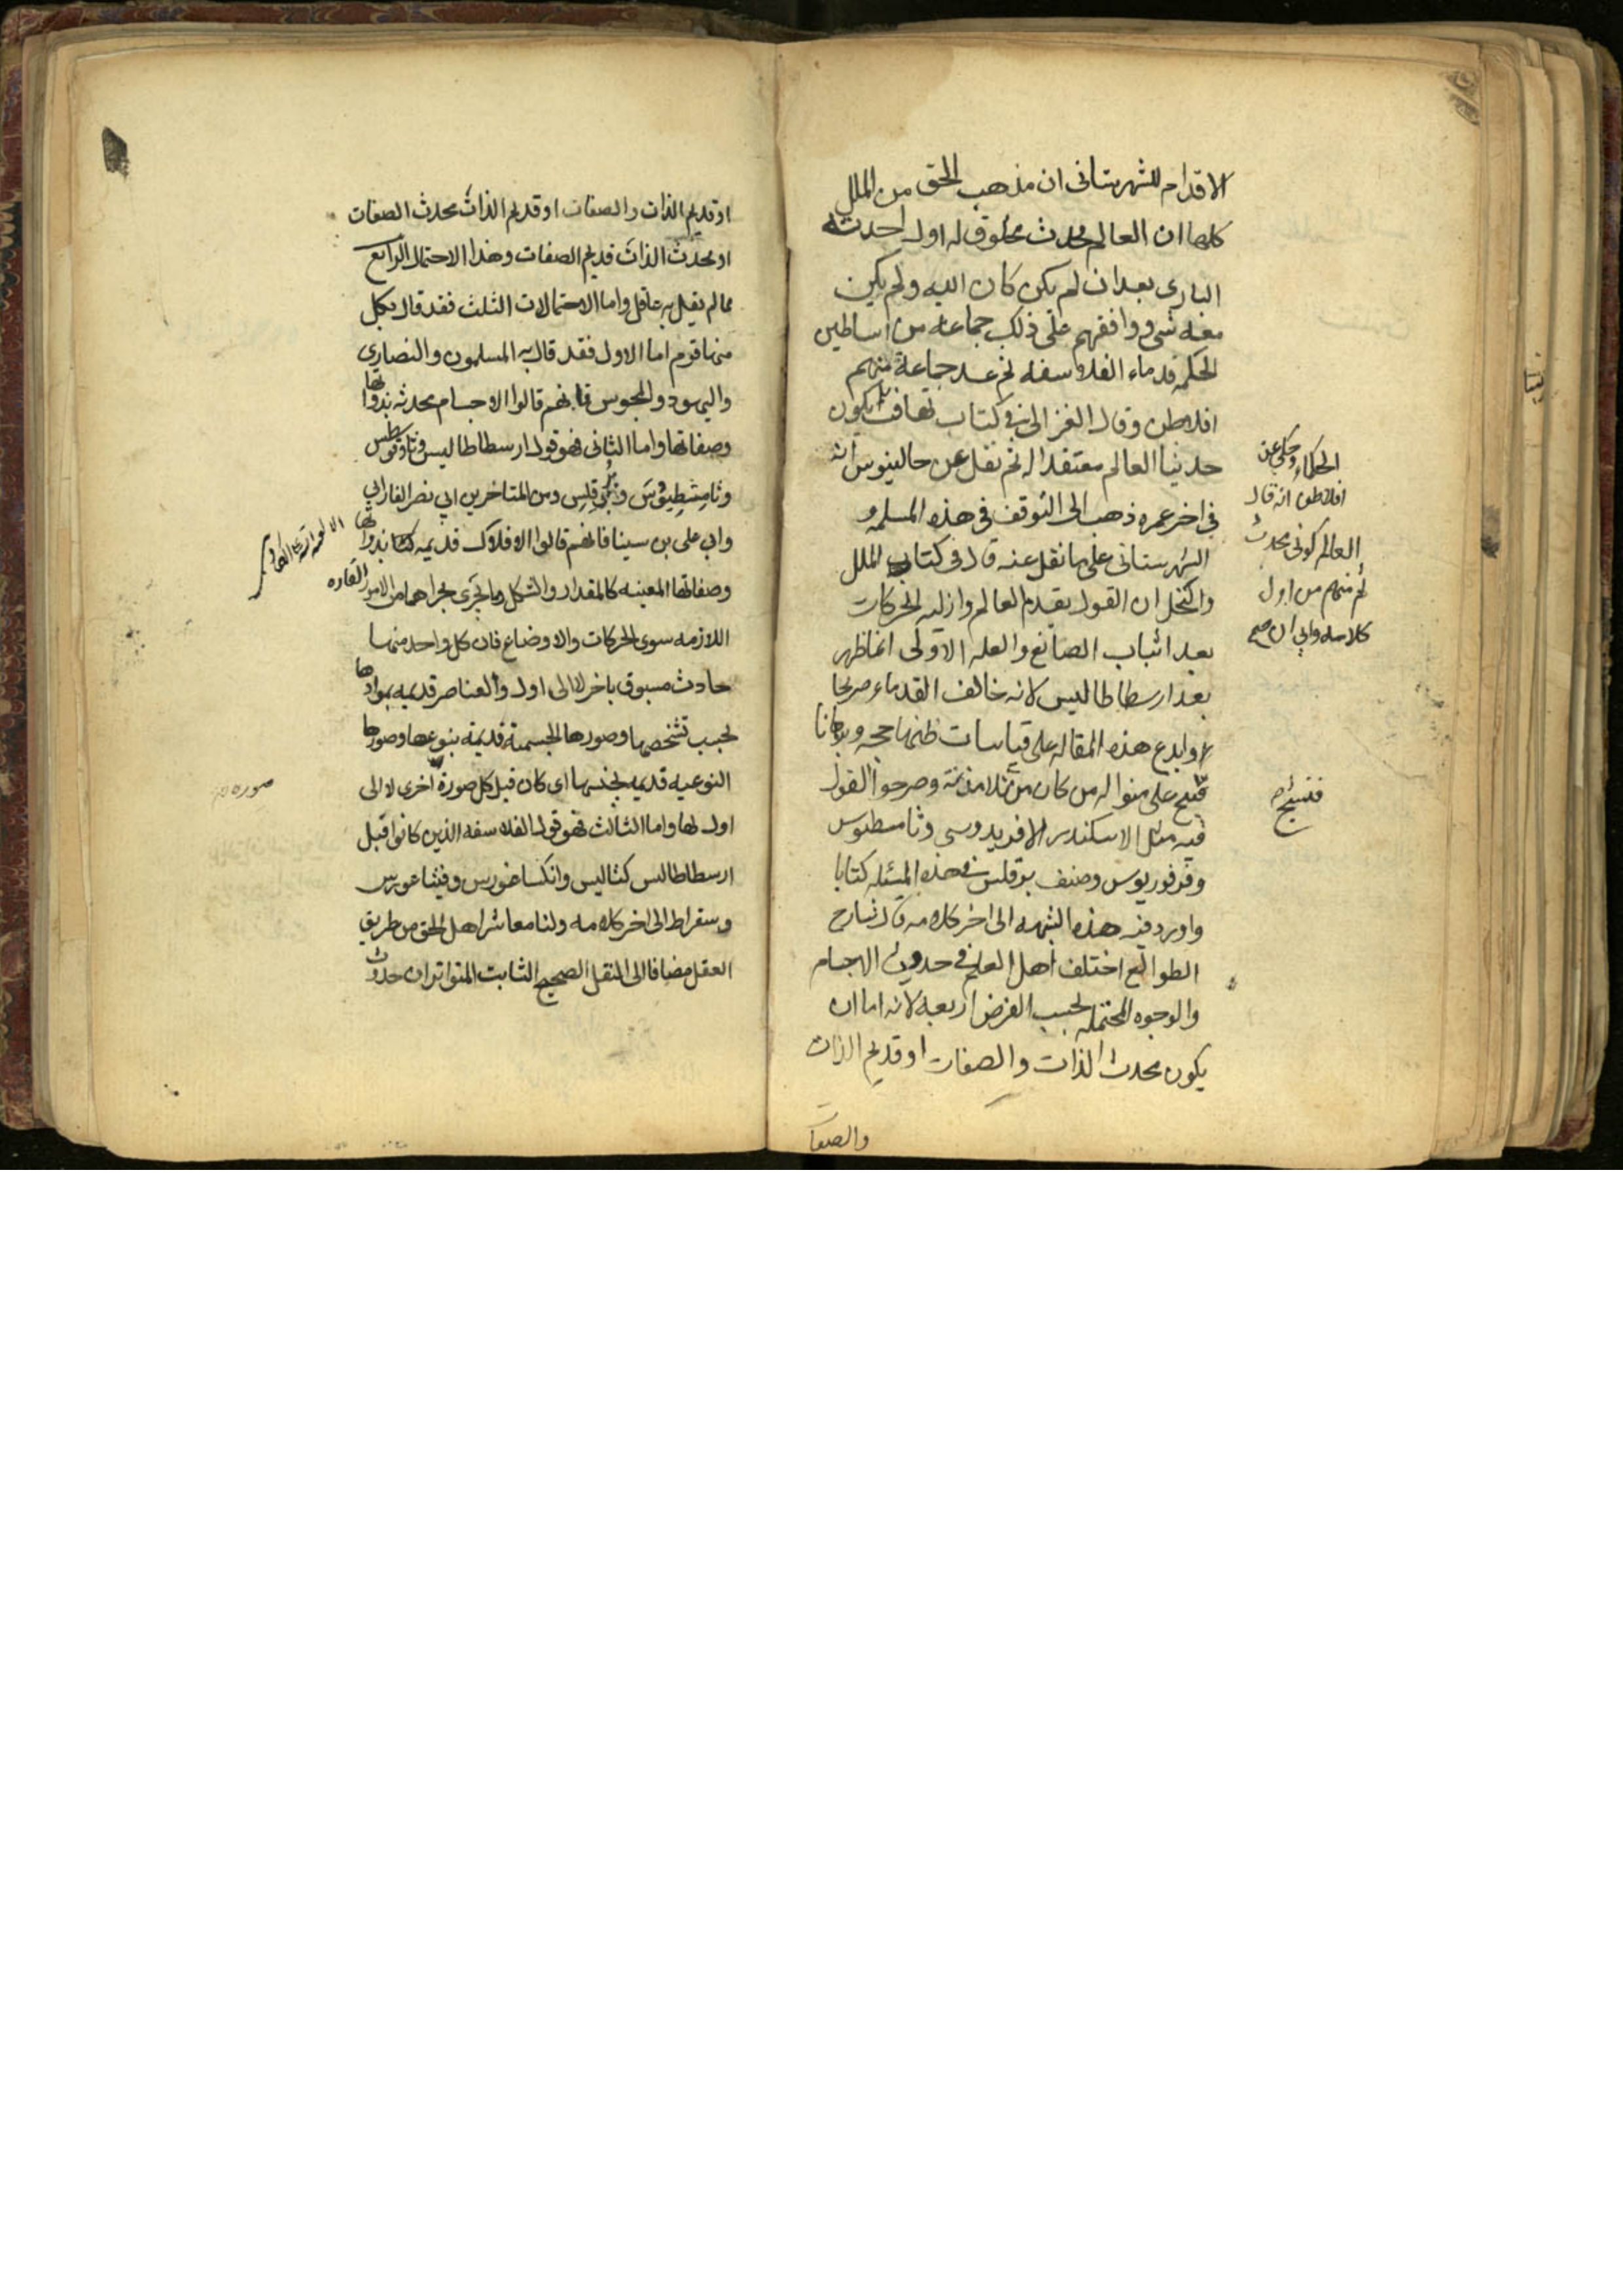 الاقدام للشهرستانى ان مذهب الحق من الملل
كلها ان العالم محدث مخلوق له اول احدثه
البارى بعد ان لم يكن كان الله ولم يكن
معه شى ووافقهم على ذلك جماعه من اساطين
الحكمه قدماء الفلاسفه ثم عد جماعة منهم
افلاطن وقال الغزالى فى كتاب تهافت
حدثنا العالم معتقدا له ثم نقل عن جالينوس انه
فى اخر عمره ذهب الى التوقف فى هذه المسلمه و
الشهرستانى على ما نقل عنه قال فى كتاب الملل
والنحل ان القول بقدم العالم وازليه الحركات
بعد اثبات الصانع والعله الاولى انما ظهر
بعد ارسطاطاليس لانه خالف القدماء صريحا
وابدع هذه المقاله على قياسات ظنها حجه وبرهانا
على منواله من كان من تلامذته وصرحوا القول
فيه مثل الاسكندر الافريدوسى وثامسطيوس
وفرفوريوس وصنف برقلس فى هذه المسئله كتابا
واورد فيه هذه الشبهه الى اخر كلامه قال شارح
الطوالع اختلف اهل العلم فى حدوث الاجسام
والوجوه المحتمله بحسب الفرض اربعه لانه اما ان
يكون محدث الذات والصفات او قديم الذات
والصفا
الحكماء وحكى عن
افلاطون انه قال
العالم كونى محدث
ثم منهم من اول
كلامه وابى ان صح
فنسج صح
او قديم الذات والصفات او قديم الذات محدث الصفات
او محدث الذات قديم الصفات وهذا الاحتمال الرابع
مما لم يقل به عاقل واما الاحتمالات الثلث فقد قال بكل
منها قوم اما الاول فقد قال به المسلمون والنصارى
واليهود والمجوس فانهم قالوا الاجسام محدثه بذواتها
وصفاتها واما الثانى فهو قول ارسطاطاليس وثاوفرسطس
وثامشطيوس وبرقلس ومن المتاخرين ابى نصر الفارابى
وابى على بن سينا فانهم قالوا الافلاك قديمه بذواتها
وصفاتها المعينه كالمقدار والشكل وما يجرى مجراهما من الامور القاره
اللازمه سوى الحركات والاوضاع فان كل واحد منها
حادث مسبوق باخر لا الى اول والعناصر قديمه بموادها
بحسب تشخصها وصورها الجسمية قديمة بنوعها وصورها
النوعيه قديمه بجنسها اى كان قبل كل صورة اخرى لا الى
اول لها واما الثالث فهو قول الفلاسفه الذين كانوا قبل
ارسطاطالس كثاليس وانكساغورس وفيثاغورس
وسقراط الى اخر كلامه ولنا معاشر اهل الحق من طريق
العقل مضافا الى النقل الصحيح الثابت المتواتر ان حدوث
صوره